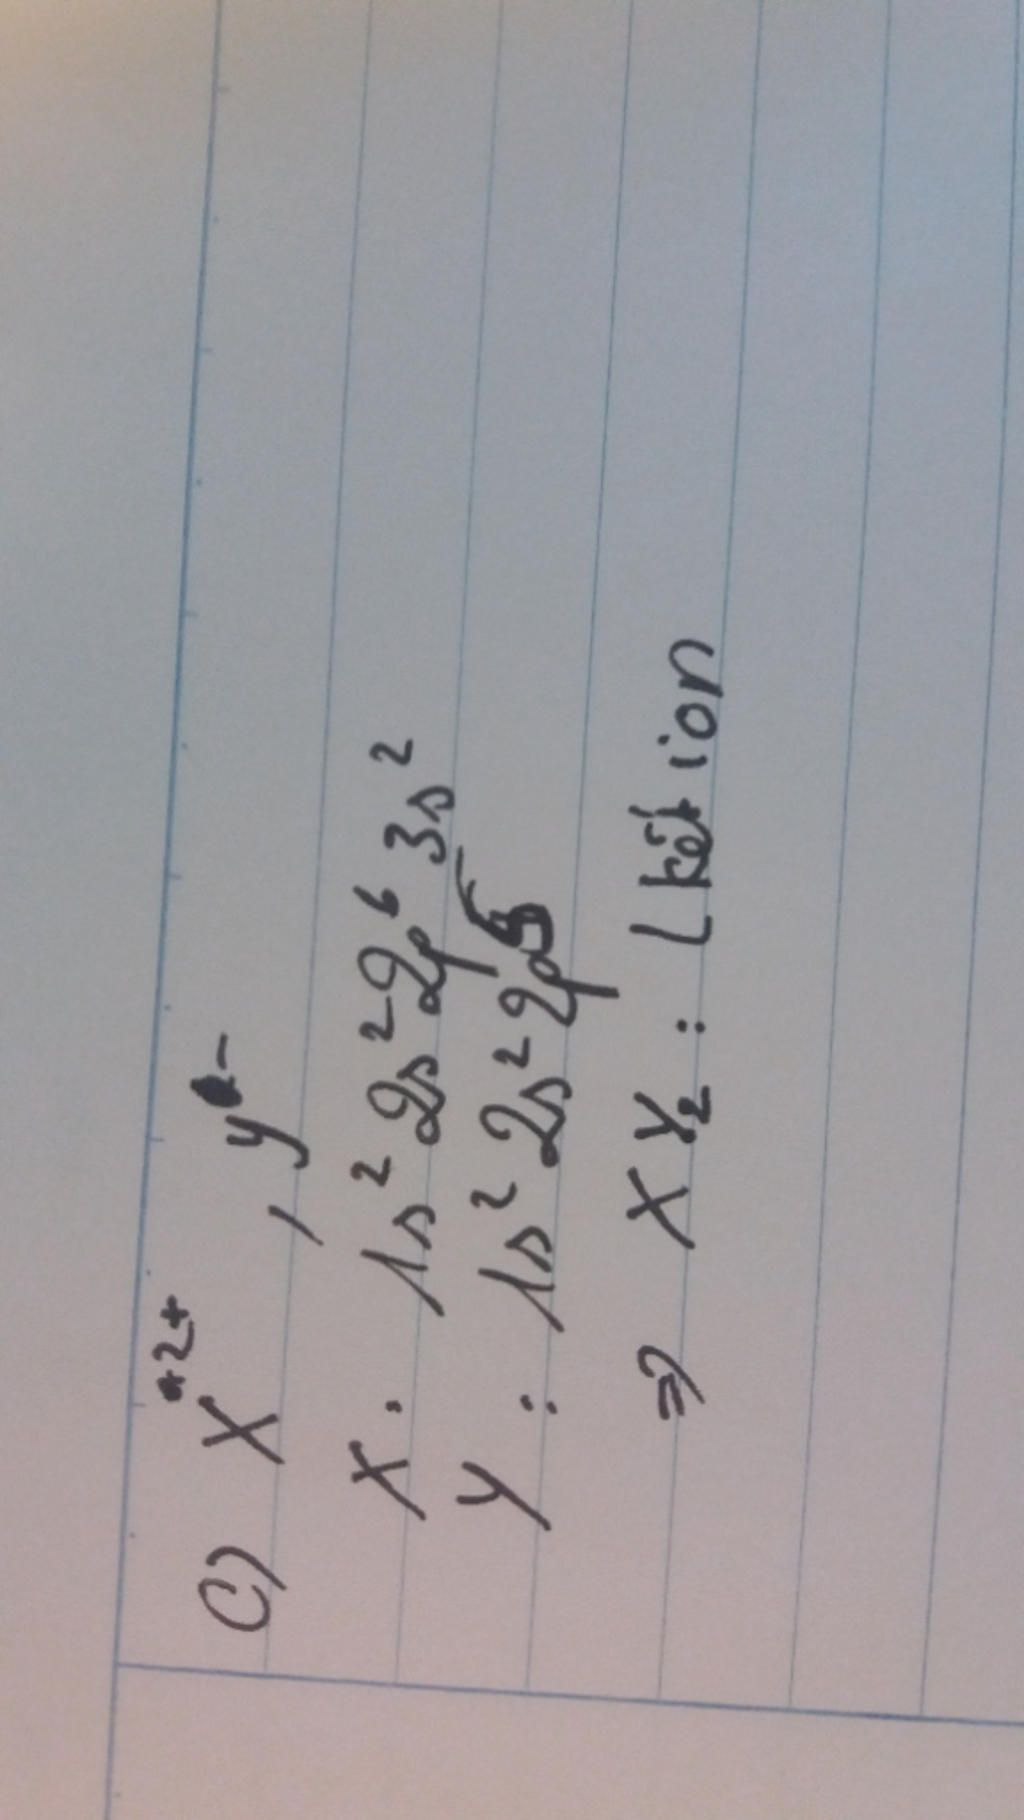 c) X²⁺, y⁻
X: 1s² 2s² 2p⁶ 3s²
Y: 1s² 2s² 2p⁵
⇒ XY₂: Lkết ion